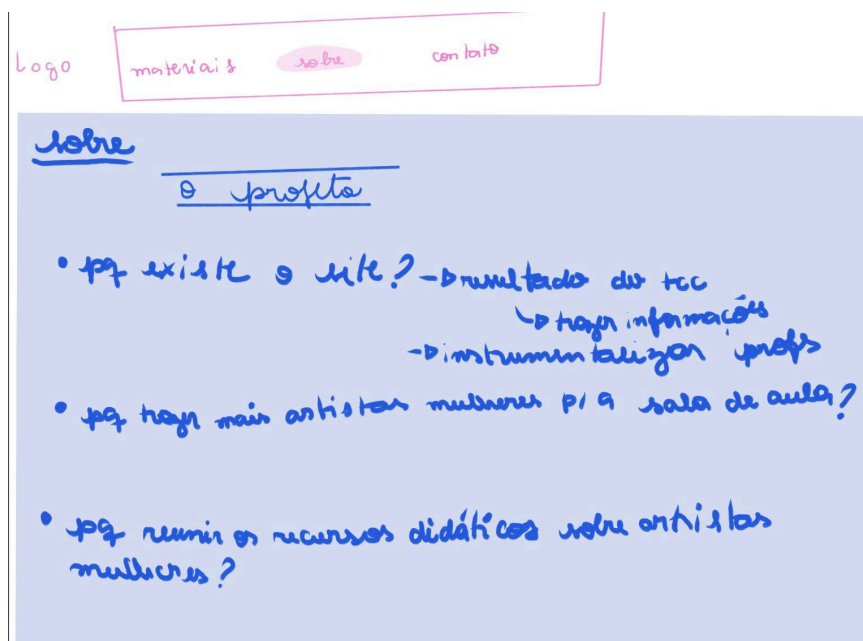 Logo materiais sobre contato
sobre
o projeto
• pq existe o site? → resultado do tcc
↳ trazer informações
→ instrumentalizar profs
• pq trazer mais artistas mulheres p/ a sala de aula?
• pq reunir os recursos didáticos sobre artistas
mulheres?